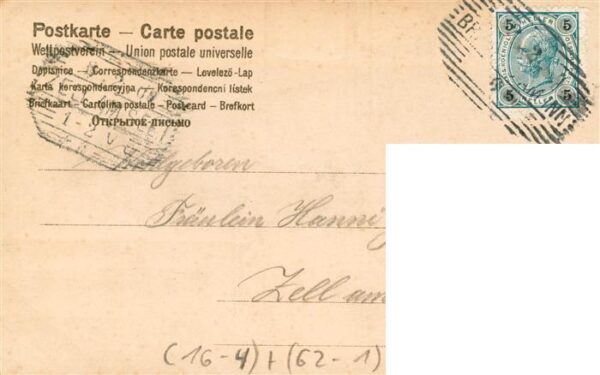 Postkarte — Carte postale
Weltpostverein — Union postale universelle
Dopisnice — Correspondenzkarte — Levelező-Lap
Karta korespondencyjna — Korespondencni listek
Briefkaart — Cartolina postale — Postcard — Brefkort
Открытое-письмо
5 5
5 5
1-2 V
Wohlgeboren
Fräulein Hanni
Zell am
(16-4)+(62-1)